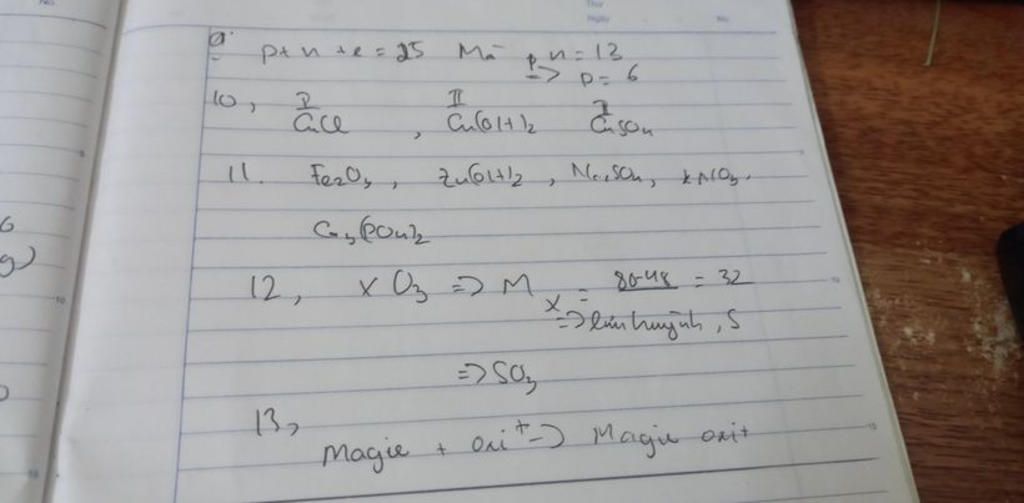 No.
Thứ
Ngày
No.
9. p + n + e = 25 Mà n = 13
=> p = 6
10, I II I
CuCl , Cu(OH)2 CuSO4
11. Fe2O3, Zn(OH)2, Na2SO4, KNO3.
Ca3(PO4)2
12, XO3 => M X = 80-48 = 32
=> lưu huỳnh, S
=> SO3
13,
Magie + oxi t => Magie oxit